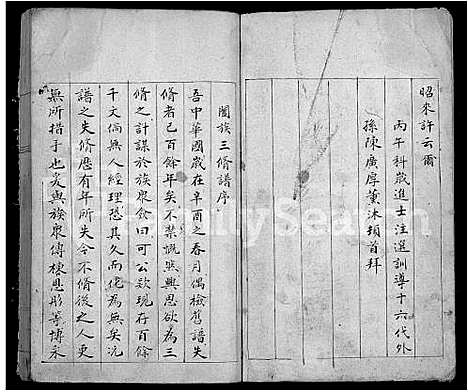 昭來許云爾
丙午科歲進士注選訓導十六代外
孫陳廣厚薰沐頓首拜
闔族三修譜序
吾中華國歲在辛酉之春月偶檢舊譜失
修者已百餘年矣不禁慨然興思欲為三
修之計謀於族衆僉曰可公欵現存百餘
千文倘無人經理恐其久而化為無矣况
譜之失修歷有年所失今不修後之人更
無所措手也爰與族衆傳梯思彤等博采
FamilySearch